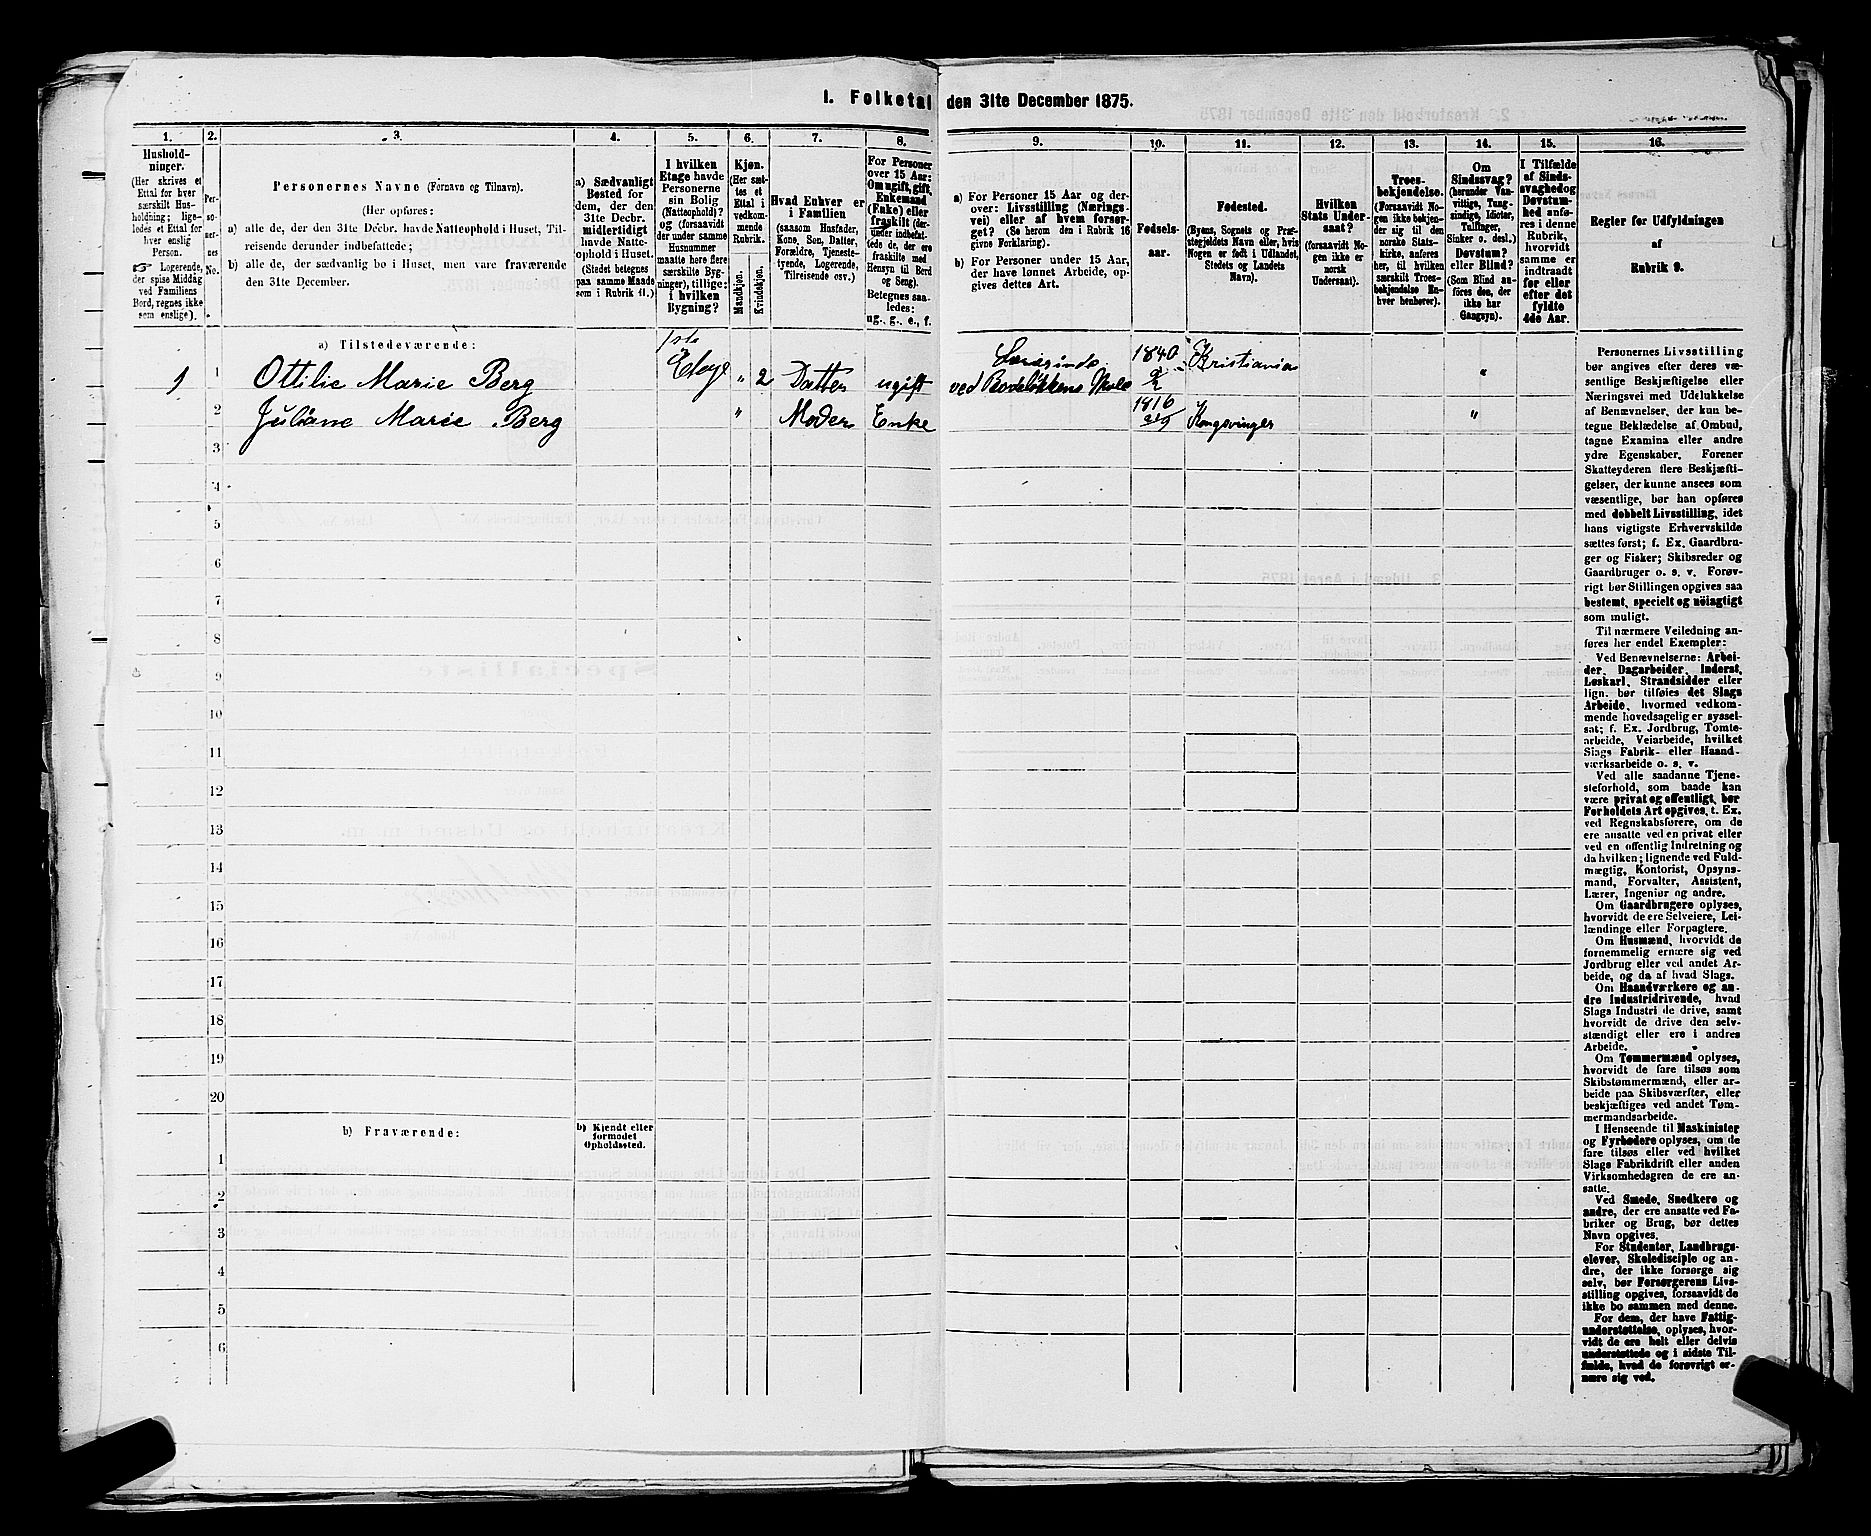 I. Folketal den 31te December 1875.
1. 2. 3. 4. 5. 6. 7. 8. 9. 10. 11. 12. 13. 14. 15. 16.
Husholdninger.
(Her skrives et
Ettal for hver
særskilt Husholdning;
ligeledes et Ettal for
hver enslig
Person.
☞ Logerende,
der spise Middag
ved Familiens
Bord, regnes ikke
som enslige).
Personernes No.
Personernes Navne (Fornavn og Tilnavn).
(Her opføres:
a) alle de, der den 31te Decbr. havde Natteophold i Huset, Tilreisende derunder indbefattede;
b) alle de, der sædvanlig bo i Huset, men vare fraværende
den 31te December.
a) Sædvanligt
Bosted for
dem, der den
31te Decbr.
midlertidigt
havde Natteophold i Huset.
(Stedet betegnes
paa samme Maade
som i Rubrik 11.)
I hvilken
Etage havde
Personerne
sin Bolig
(Natteophold)?
og (forsaavidt
der under samme
Husnummer
maatte høre flere
særskilte Bygninger), tillige:
i hvilken
Bygning?
Kjøn.
(Her sættes et
Ettal i
vedkommende
Rubrik.
Mandkjøn.
Kvindekjøn.
Hvad Enhver er
i Familien
(saasom Husfader,
Kone, Søn, Datter,
Forældre, Tjenestetyende, Logerende,
Tilreisende osv.)
For Personer
over 15 Aar:
Om ugift, gift,
Enkemand
(Enke) eller
fraskilt (derunder indbefattede de, der ere
fraskilte med
Hensyn til Bord
og Seng).
Betegnes saaledes:
ug., g., e., f.
a) For Personer 15 Aar og derover: Livsstilling (Næringsvei) eller af hvem forsørget? (Se herom den i Rubrik 16
givne Forklaring).
b) For Personer under 15 Aar,
der have lønnet Arbeide, opgives dettes Art.
Fødselsaar.
Fødested.
(Byens, Sognets og Præstegjeldets Navn eller, hvis
Nogen er født i Udlandet,
Stedets og Landets
Navn).
Hvilken
Stats Undersaat?
(forsaavidt Nogen ikke er
norsk
Undersaat).
Troesbekjendelse.
(Forsaavidt Nogen ikke bekjender sig til den
norske Statskirke, anføres
her, til hvilken
særskilt Troesbekjendelse Enhver henhører).
Om
Sindssvag?
(herunder Vanvittige, Tungsindige, Idioter,
Tullinger,
Sinker o. desl.)
Døvstum?
eller Blind?
(Som Blind anføres den, der
ikke har
Gangsyn).
I Tilfælde
af Sindssvaghed og
Døvstumhed anføres i denne
Rubrik,
hvorvidt
samme er
indtraadt
før eller
efter det
fyldte
4de Aar.
Regler for Udfyldningen
af
Rubrik 9.
a) Tilstedeværende:
1ste
1 1 Ottilie Marie Berg Etage " 2 Datter ugift ved 1840 Kristiania "
2 Juliane Marie Berg " Moder Enke 1816 Kongsvinger "
3
4
5
6
7
8
9
10
11
12
13
14
15
16
17
18
19
20
b) Fraværende:
b) Kjendt eller
formodet
Opholdssted.
1
2
3
4
5
6
Personernes Livsstilling
bør angives efter deres væsentlige Beskjæftigelse eller
Næringsvei med Udelukkelse
af Benævnelser, der kun betegne Beklædelse af Ombud,
tagne Examina eller andre
ydre Egenskaber. Forener
Skatteyderen flere Beskjæftigelser, der kunne ansees som
væsentlige, bør han opføres
med dobbelt Livsstilling, idet
hans vigtigste Erhvervskilde
sættes først; f. Ex. Gaardbruger og Fisker; Skibsreder og
Gaardbruger o. s. v. Forøvrigt bør Stillingen opgives saa
bestemt, specielt og nöiagtigt
som muligt.
Til nærmere Veiledning anføres her endel Exempler:
Ved Benævnelserne: Arbeider, Dagarbeider, Inderst,
Løskarl, Strandsidder eller
lign. bør tilføies det Slags
Arbeide, hvormed vedkommende hovedsagelig er sysselsat; f. Ex. Jordbrug, Tomtearbeide, Veiarbeide, hvilket
Slags Fabrik- eller Haandværksarbeide o. s. v.
Ved alle saadanne Tjenesteforhold, som baade kan
være privat og offentligt, bør
Forholdets Art opgives, t. Ex.
ved Regnskabsførere, om de
ere ansatte ved en privat eller
ved en offentlig Indretning og
da hvilken; lignende ved Fuldmægtig, Kontorist, Opsynsmand, Forvalter, Assistent,
Lærer, Ingeniør og andre.
Om Gaardbrugere oplyses,
hvorvidt de ere Selveiere, Leilændinge eller Forpagtere.
Om Husmænd, hvorvidt de
fornemmelig ernære sig ved
Jordbrug eller ved andet Arbeide, og da af hvad Slags.
Om Haandværkere og andre Industridrivende, hvad
Slags Industri de drive, samt
hvorvidt de drive den selvstændigt eller ere i andres
Arbeide.
Om Tømmermænd oplyses,
hvorvidt de fare tilsøs som
Skibstømmermænd, eller arbeide paa Skibsværfter, eller
beskjæftiges ved andet Tømmermandsarbeide.
I Henseende til Maskinister
og Fyrbødere oplyses, om de
fare tilsøs eller ved hvilket
Slags Fabrikdrift eller anden
Virksomhedsgren de ere ansatte.
Ved Smede, Snedkere og
andre, der ere ansatte ved Fabriker og Brug, bør dettes
Navn opgives.
For Studenter, Landbrugselever, Skoledisciple og andre, der ikke forsørge sig
selv, bør Forsørgerens Livsstilling opgives, forsaavidt de
ikke bo sammen med denne.
For dem, der have Fattigunderstøttelse, oplyses, hvorvidt de ere helt eller delvis
understøttede og i sidste Tilfælde, hvad de forøvrigt ernære sig ved.